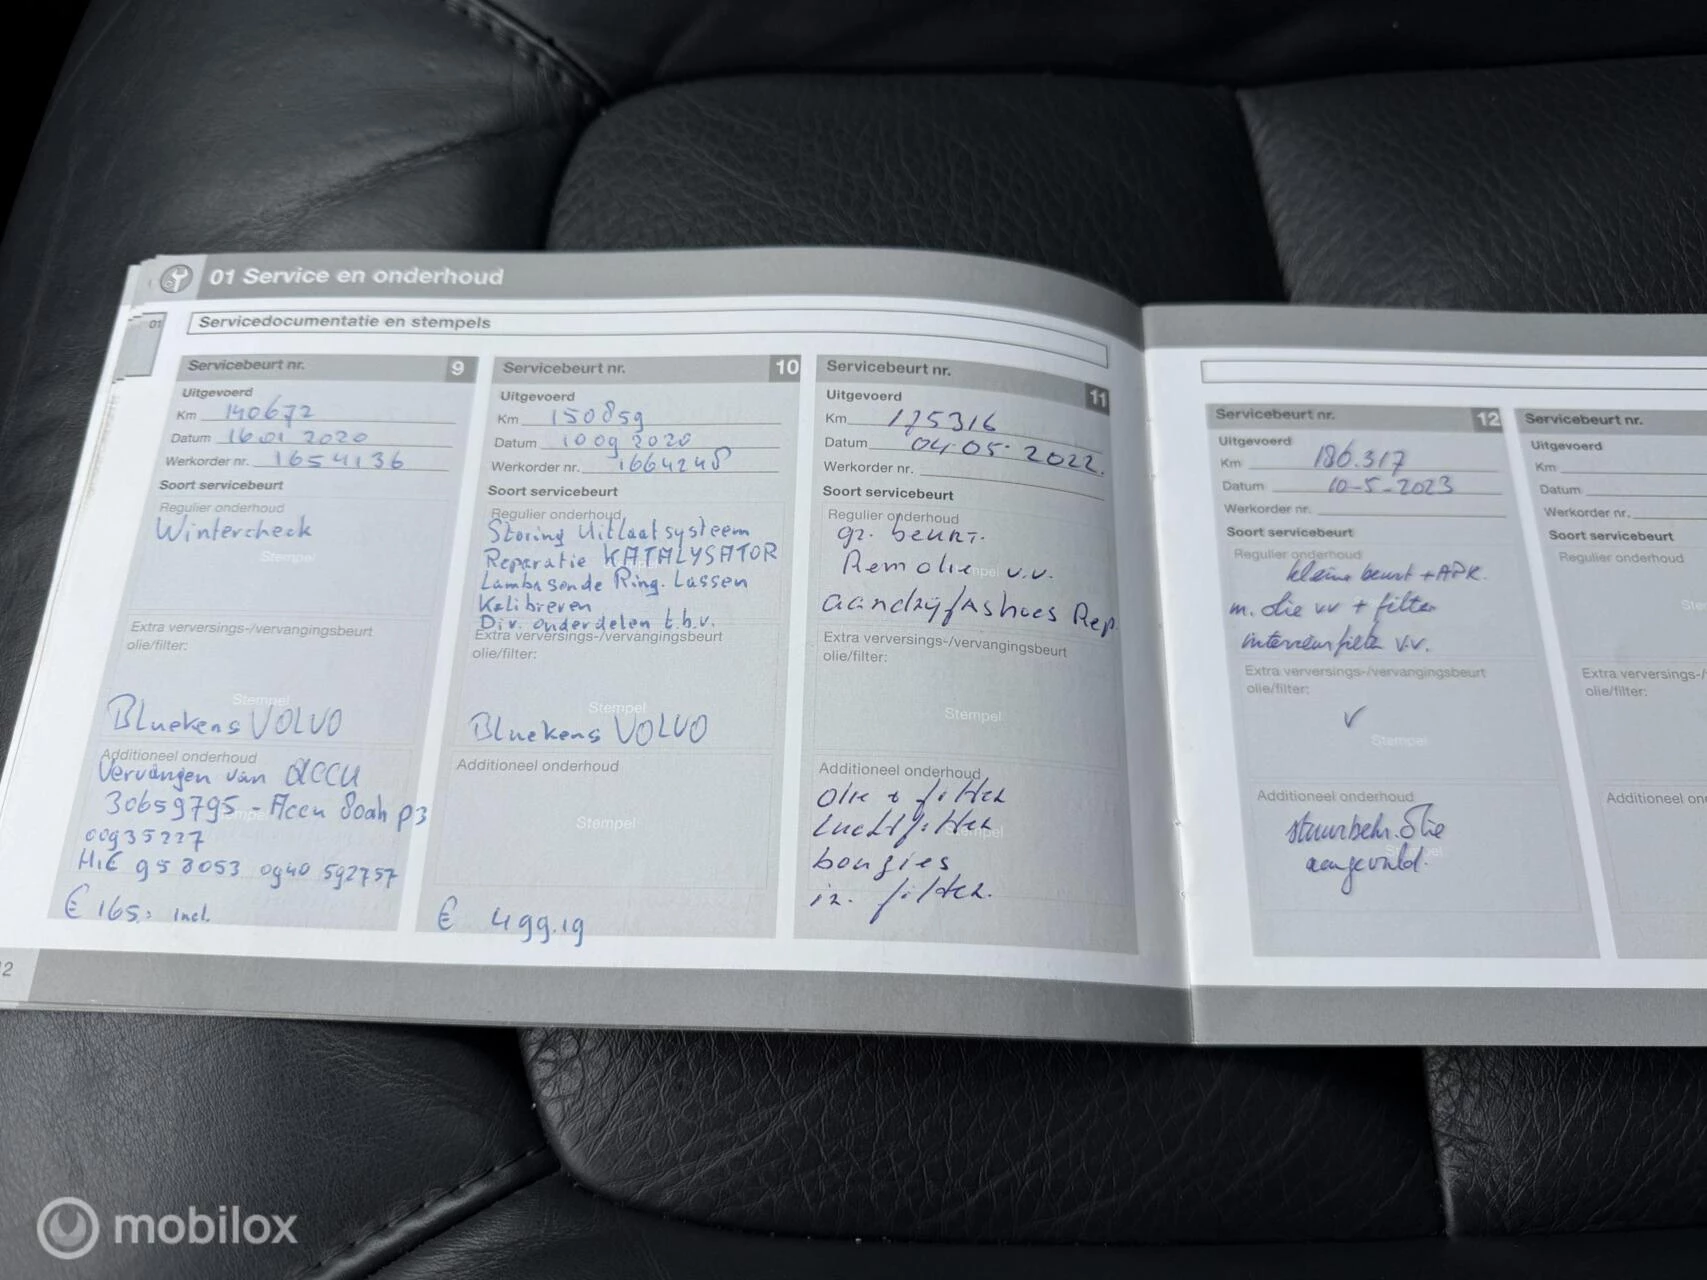 01 Service en onderhoud
01
Servicedocumentatie en stempels
Servicebeurt nr. 9
Uitgevoerd
Km 140672
Datum 16 01 2020
Werkorder nr. 1654136
Soort servicebeurt
Regulier onderhoud
Wintercheck
Stempel
Extra verversings-/vervangingsbeurt
olie/filter:
Stempel
Bluekens VOLVO
Additioneel onderhoud
Vervangen van ACCU
30659795 - Accu 80ah P3
00935227
€ 165,= incl.
12
Servicebeurt nr. 10
Uitgevoerd
Km 150859
Datum 10 09 2020
Werkorder nr. 1664248
Soort servicebeurt
Regulier onderhoud
Storing Uitlaatsysteem
Reparatie KATALYSATOR
Lambasonde Ring. Lassen
Kalibreren
Div. onderdelen t.b.v.
Extra verversings-/vervangingsbeurt
olie/filter:
Stempel
Bluekens VOLVO
Additioneel onderhoud
Stempel
€ 499.19
Servicebeurt nr. 11
Uitgevoerd
Km 175316
Datum 04-05-2022.
Werkorder nr.
Soort servicebeurt
Regulier onderhoud
gr. beurt.
Remolie v.v.
aandrijfashoes Rep.
Extra verversings-/vervangingsbeurt
olie/filter:
Stempel
Additioneel onderhoud
olie + filter
luchtfilter
bougies
in. filter.
Servicebeurt nr. 12
Uitgevoerd
Km 186.317
Datum 10-5-2023
Werkorder nr.
Soort servicebeurt
Regulier onderhoud
kleine beurt + APK.
m. olie vv + filter
interieurfilter v.v.
Extra verversings-/vervangingsbeurt
olie/filter:
✓
Stempel
Additioneel onderhoud
stuurbekr. olie
aangevuld.
Servicebeurt nr.
Uitgevoerd
Km
Datum
Werkorder nr.
Soort servicebeurt
Regulier onderhoud
Extra verversings-/
olie/filter:
Additioneel on
mobilox